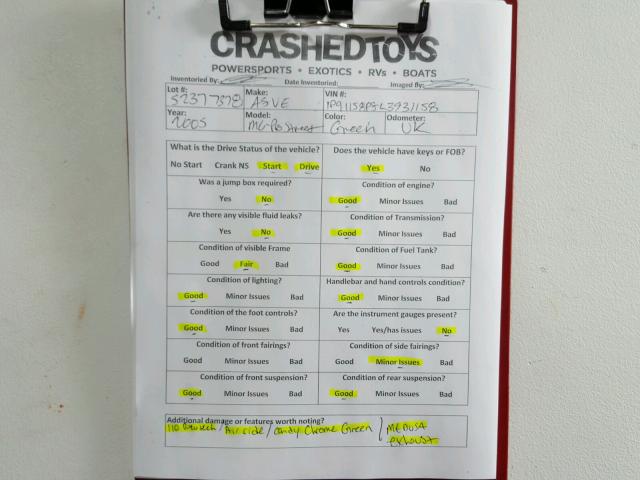 CRASHEDTOYS
POWERSPORTS • EXOTICS • RVs • BOATS
Inventoried By: Date Inventoried: Imaged By:
Lot #: Make: VIN #:
52377378 ASVE
Year: Model: Color: Odometer:
2005 Street Green UK
What is the Drive Status of the vehicle? Does the vehicle have keys or FOB?
No Start Crank NS Start Drive Yes No
Was a jump box required? Condition of engine?
Yes No Good Minor Issues Bad
Are there any visible fluid leaks? Condition of Transmission?
Yes No Good Minor Issues Bad
Condition of visible Frame Condition of Fuel Tank?
Good Fair Bad Good Minor Issues Bad
Condition of lighting? Handlebar and hand controls condition?
Good Minor Issues Bad Good Minor Issues Bad
Condition of the foot controls? Are the instrument gauges present?
Good Minor Issues Bad Yes Yes/has issues No
Condition of front fairings? Condition of side fairings?
Good Minor Issues Bad Good Minor Issues Bad
Condition of front suspension? Condition of rear suspension?
Good Minor Issues Bad Good Minor Issues Bad
Additional damage or features worth noting?
110 / Air ride / Candy Chrome Green / MEDUSA
exhaust